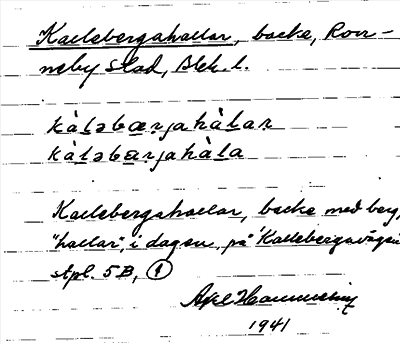 Kallebergahallar, backe, Ron-
neby stad, Blek. l.
kàləbærjahàlar
kàləbærjahàla
Kallebergahallar, backe med berg,
"hallar", i dagen, på Kallebergavägen
stpl. 5B, 1
Axel Hammelin
1941